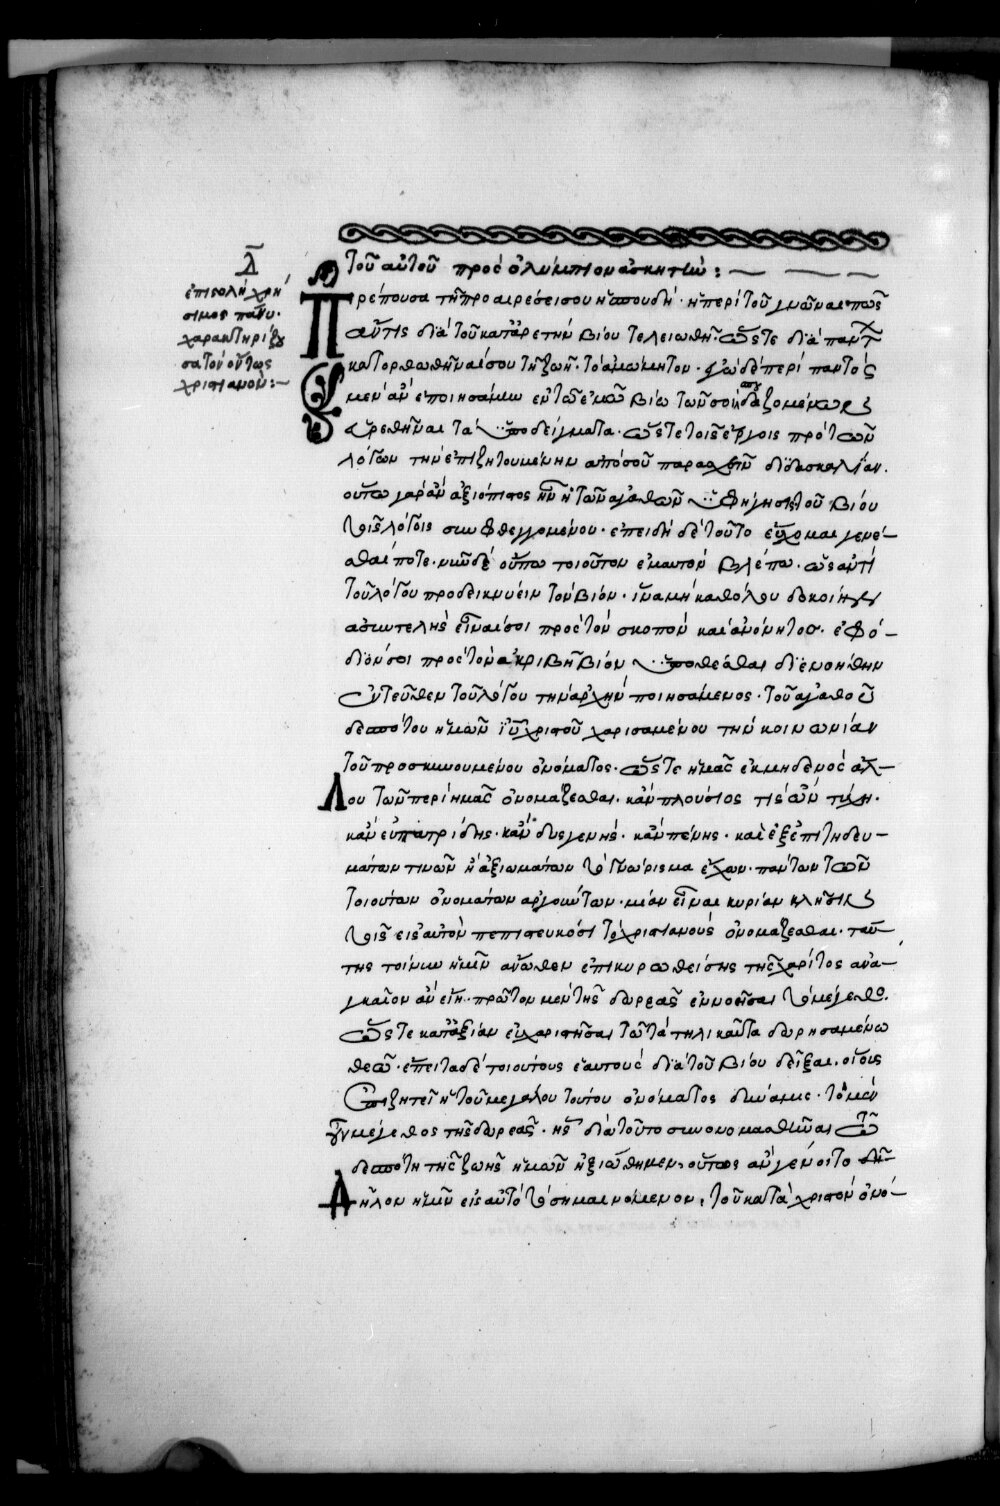 λ
ἐπιστολὴ χρή
σιμος πάνυ·
χαρακτηρίζου
σα τὸν ὄντως
χριστιανόν:—
Τοῦ αὐτοῦ πρὸς ὀλύμπιον ἀσκητήν:—
Πρέπουσα τῆ προαιρέσει σου ἡ σπουδή· ἡ περὶ τοῦ γνῶναι πῶς
ἄν τις διὰ τοῦ κατ' ἀρετὴν βίου τελειωθῆ· ὥστε διὰ πάντων
κατορθωθῆναί σου τῆ ζωῆ· τὸ ἀμώμητον· ἐγὼ δὲ περὶ παντὸς
μὲν ἂν ἐποιησάμην ἐν τῶ ἐμῶ βίω τῶν σοὶ σπουδαζομένων
εὑρεθῆναι τὰ ὑποδείγματα· ὥστε τοῖς ἔργοις πρὸ τῶν
λόγων τὴν ἐπιζητουμένην ἀπὸ σοῦ παρασχεῖν διδασκαλίαν.
οὕτω γὰρ ἂν ἀξιόπιστος ἦν ἡ τῶν ἀγαθῶν ὑφήγησις τοῦ βίου
τοῖς λόγοις συμφθεγγομένου· ἐπειδὴ δὲ τοῦτο εὔχομαι γενέ-
σθαι ποτε· νῦν δὲ οὔπω τοιοῦτον ἐμαυτὸν βλέπω· ὡς ἀντὶ
τοῦ λόγου προδεικνύειν τὸν βίον· ἵνα μὴ καθόλου δοκοίην
ἀσυντελὴς εἶναί σοι πρὸς τὸν σκοπὸν καὶ ἀνόνητος· ἐφό-
διόν σοι πρὸς τὸν ἀκριβῆ βίον ὑποθέσθαι διενοήθην
ἐντεῦθεν τοῦ λόγου τὴν ἀρχὴν ποιησάμενος· τοῦ ἀγαθοῦ
δεσπότου ἡμῶν ἰῦ χριστοῦ χαρισαμένου τὴν κοινωνίαν
τοῦ προσκυνουμένου ὀνόματος· ὥστε ἡμᾶς ἐκ μηδενὸς ἄλ-
λου τῶν περὶ ἡμᾶς ὀνομάζεσθαι· κἂν πλούσιος τις ὢν τύχη·
κἂν εὐπατρίδης· κἂν δυσγενὴς· κἂν πένης· καὶ ἐξ ἐπιτηδευ-
μάτων τινῶν ἢ ἀξιωμάτων τὸ γνώρισμα ἔχων· πάντων τῶν
τοιούτων ὀνομάτων ἀργούντων· μίαν εἶναι κυρίαν κλῆσιν
τοῖς εἰς αὐτὸν πεπιστευκόσι τὸ χριστιανοὺς ὀνομάζεσθαι· ταύ-
της τοίνυν ἡμῖν ἄνωθεν ἐπικυρωθείσης τῆς χάριτος ἀνα-
γκαῖον ἂν εἴη· πρῶτον μὲν τῆς δωρεᾶς ἐννοῆσαι τὸ μέγεθος.
ὥστε κατ' ἀξίαν εὐχαριστῆσαι τῶ τὰ τηλικαῦτα δωρησαμένω
θεῶ· ἔπειτα δὲ τοιούτους ἑαυτοὺς διὰ τοῦ βίου δεῖξαι· οἵους
ἐπιζητεῖ ἡ τοῦ μεγάλου τούτου ὀνόματος δύναμις· τὸ μὲν
οὖν μέγεθος τῆς δωρεᾶς· ἧς διὰ τοῦτο συνονομασθῆναι τῶ
δεσπότη τῆς ζωῆς ἡμῶν ἠξιώθημεν· οὕτως ἂν γένοιτο δῆ-
δῆλον ἡμῖν εἰς αὐτὸ τὸ σημαινόμενον· τοῦ κατὰ χριστὸν ὀνό-